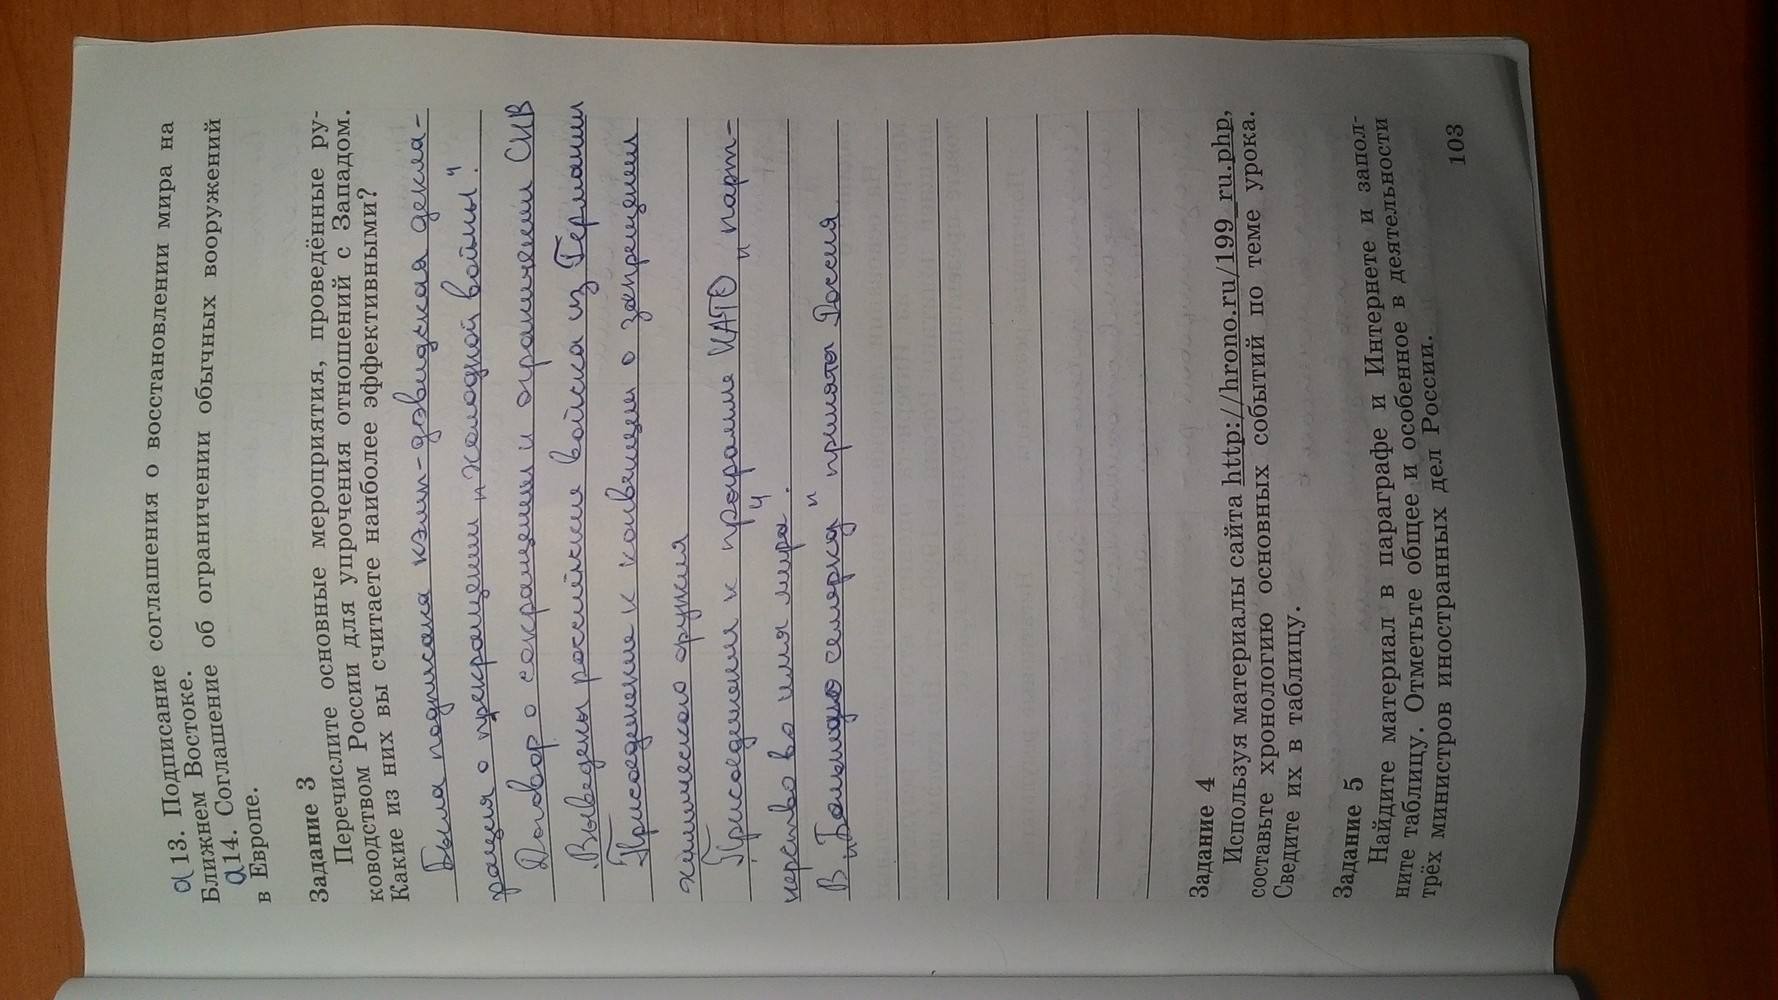 а 13. Подписание соглашения о восстановлении мира на
Ближнем Востоке.
а 14. Соглашение об ограничении обычных вооружений
в Европе.
Задание 3
Перечислите основные мероприятия, проведённые ру-
ководством России для упрочения отношений с Западом.
Какие из них вы считаете наиболее эффективными?
Была подписана кэмп-дэвидская декла-
рация о прекращении "холодной войны".
Договор о сокращении и ограничении СНВ
Выведены российские войска из Германии
Присоединение к конвенции о запрещении
химического оружия
Присоединения к програме НАТО "парт-
нерство во имя мира".
В "Большую семерку" принята Россия
Задание 4
Используя материалы сайта http://hrono.ru/199_ru.php,
составьте хронологию основных событий по теме урока.
Сведите их в таблицу.
Задание 5
Найдите материал в параграфе и Интернете и запол-
ните таблицу. Отметьте общее и особенное в деятельности
трёх министров иностранных дел России.
103